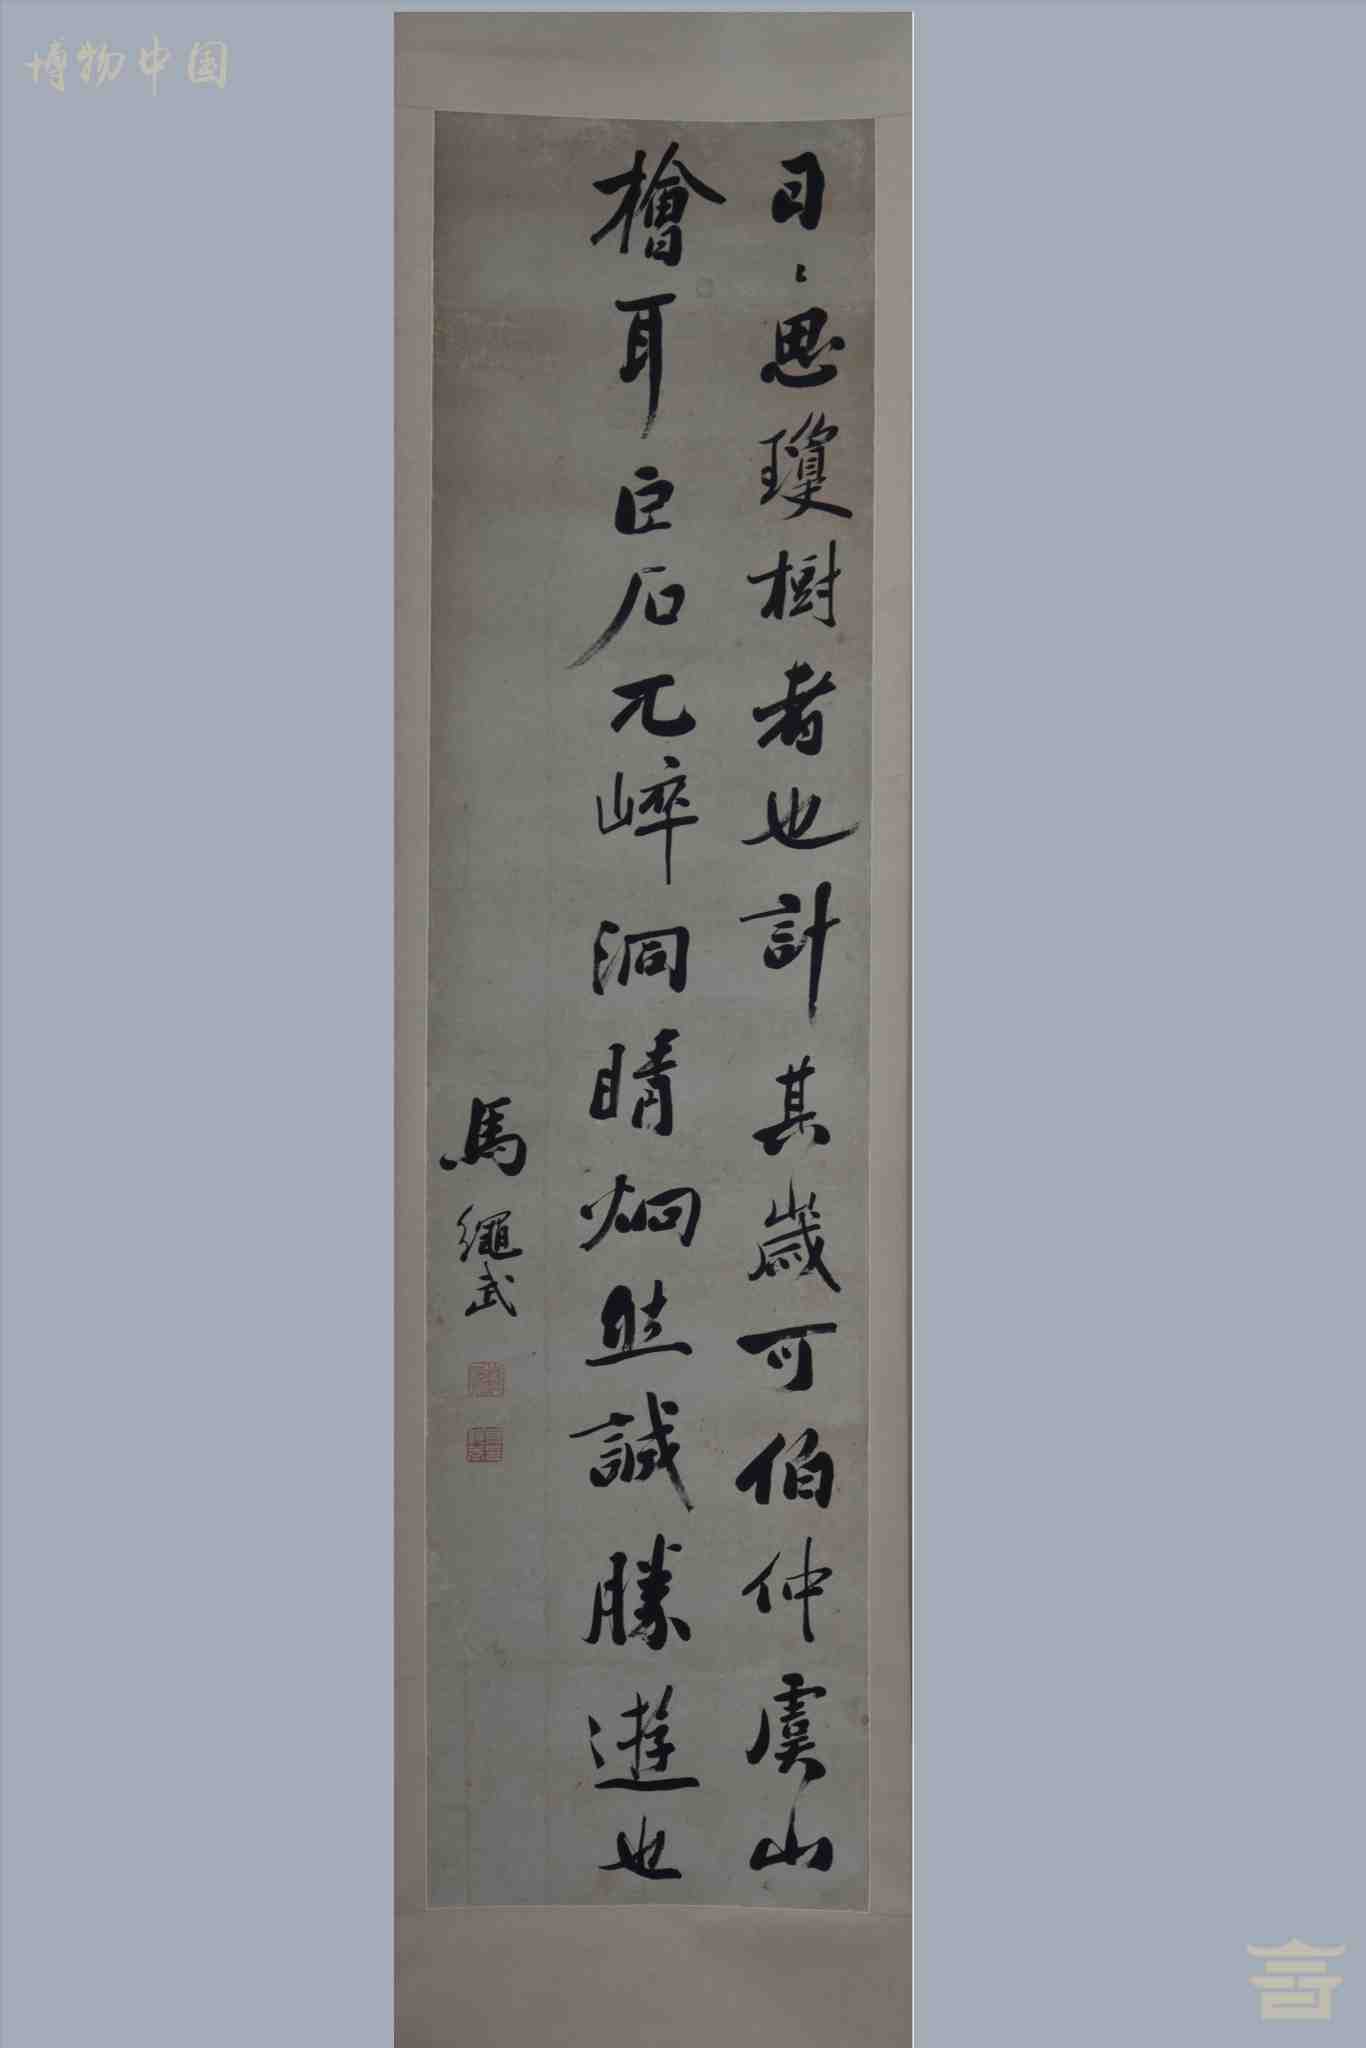 博物中国
日〻思瓊樹者也計其歲可伯仲虞山
檜耳巨石兀崒洞晴炯然誠勝遊也
馬繩武